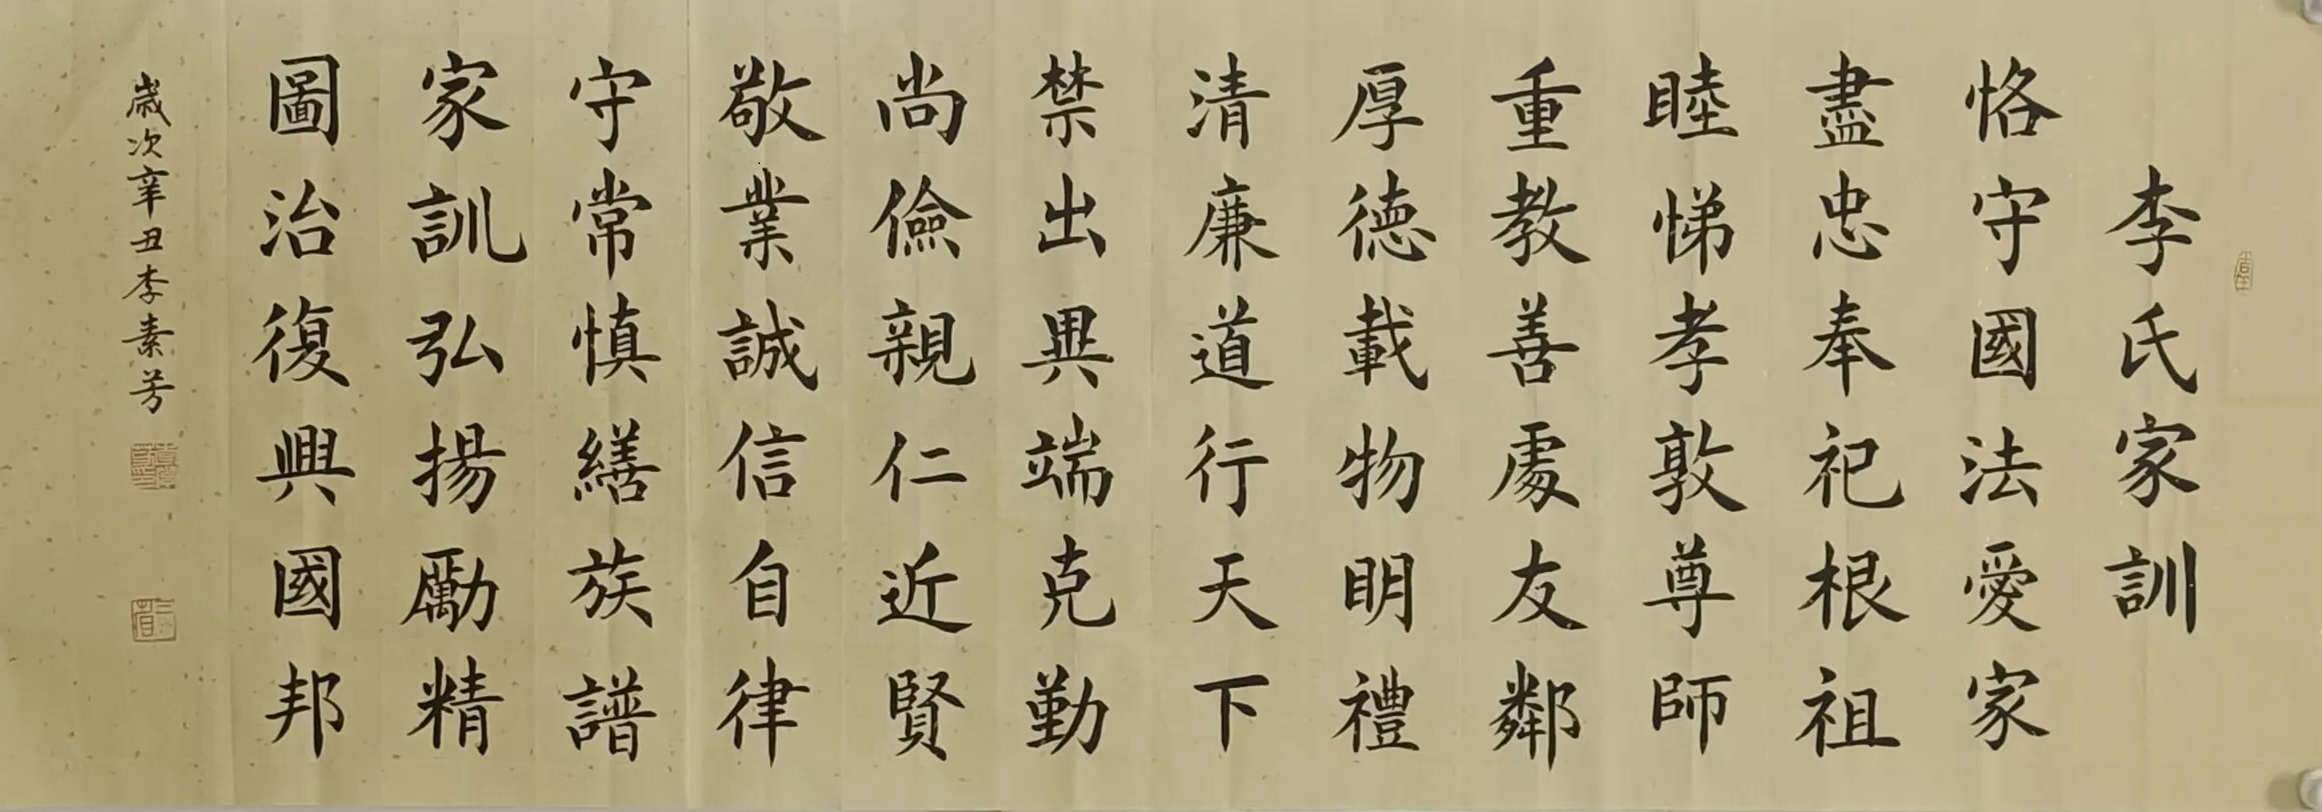 李氏家訓
恪守國法愛家
盡忠奉祀根祖
睦悌孝敦尊師
重教善處友鄰
厚德載物明禮
清廉道行天下
禁出異端克勤
尚儉親仁近賢
敬業誠信自律
守常慎繕族譜
家訓弘揚勵精
圖治復興國邦
歲次辛丑李素芳